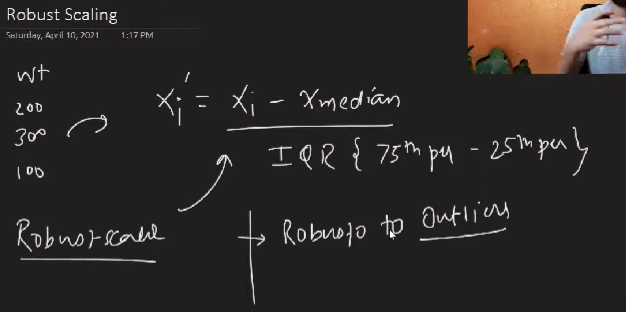 Robust Scaling
Saturday, April 10, 2021 1:17 PM
Wt
200
300
100
Xi' = Xi - Xmedian
IQR { 75th per - 25th per }
Robust-scale
Robust to Outliers